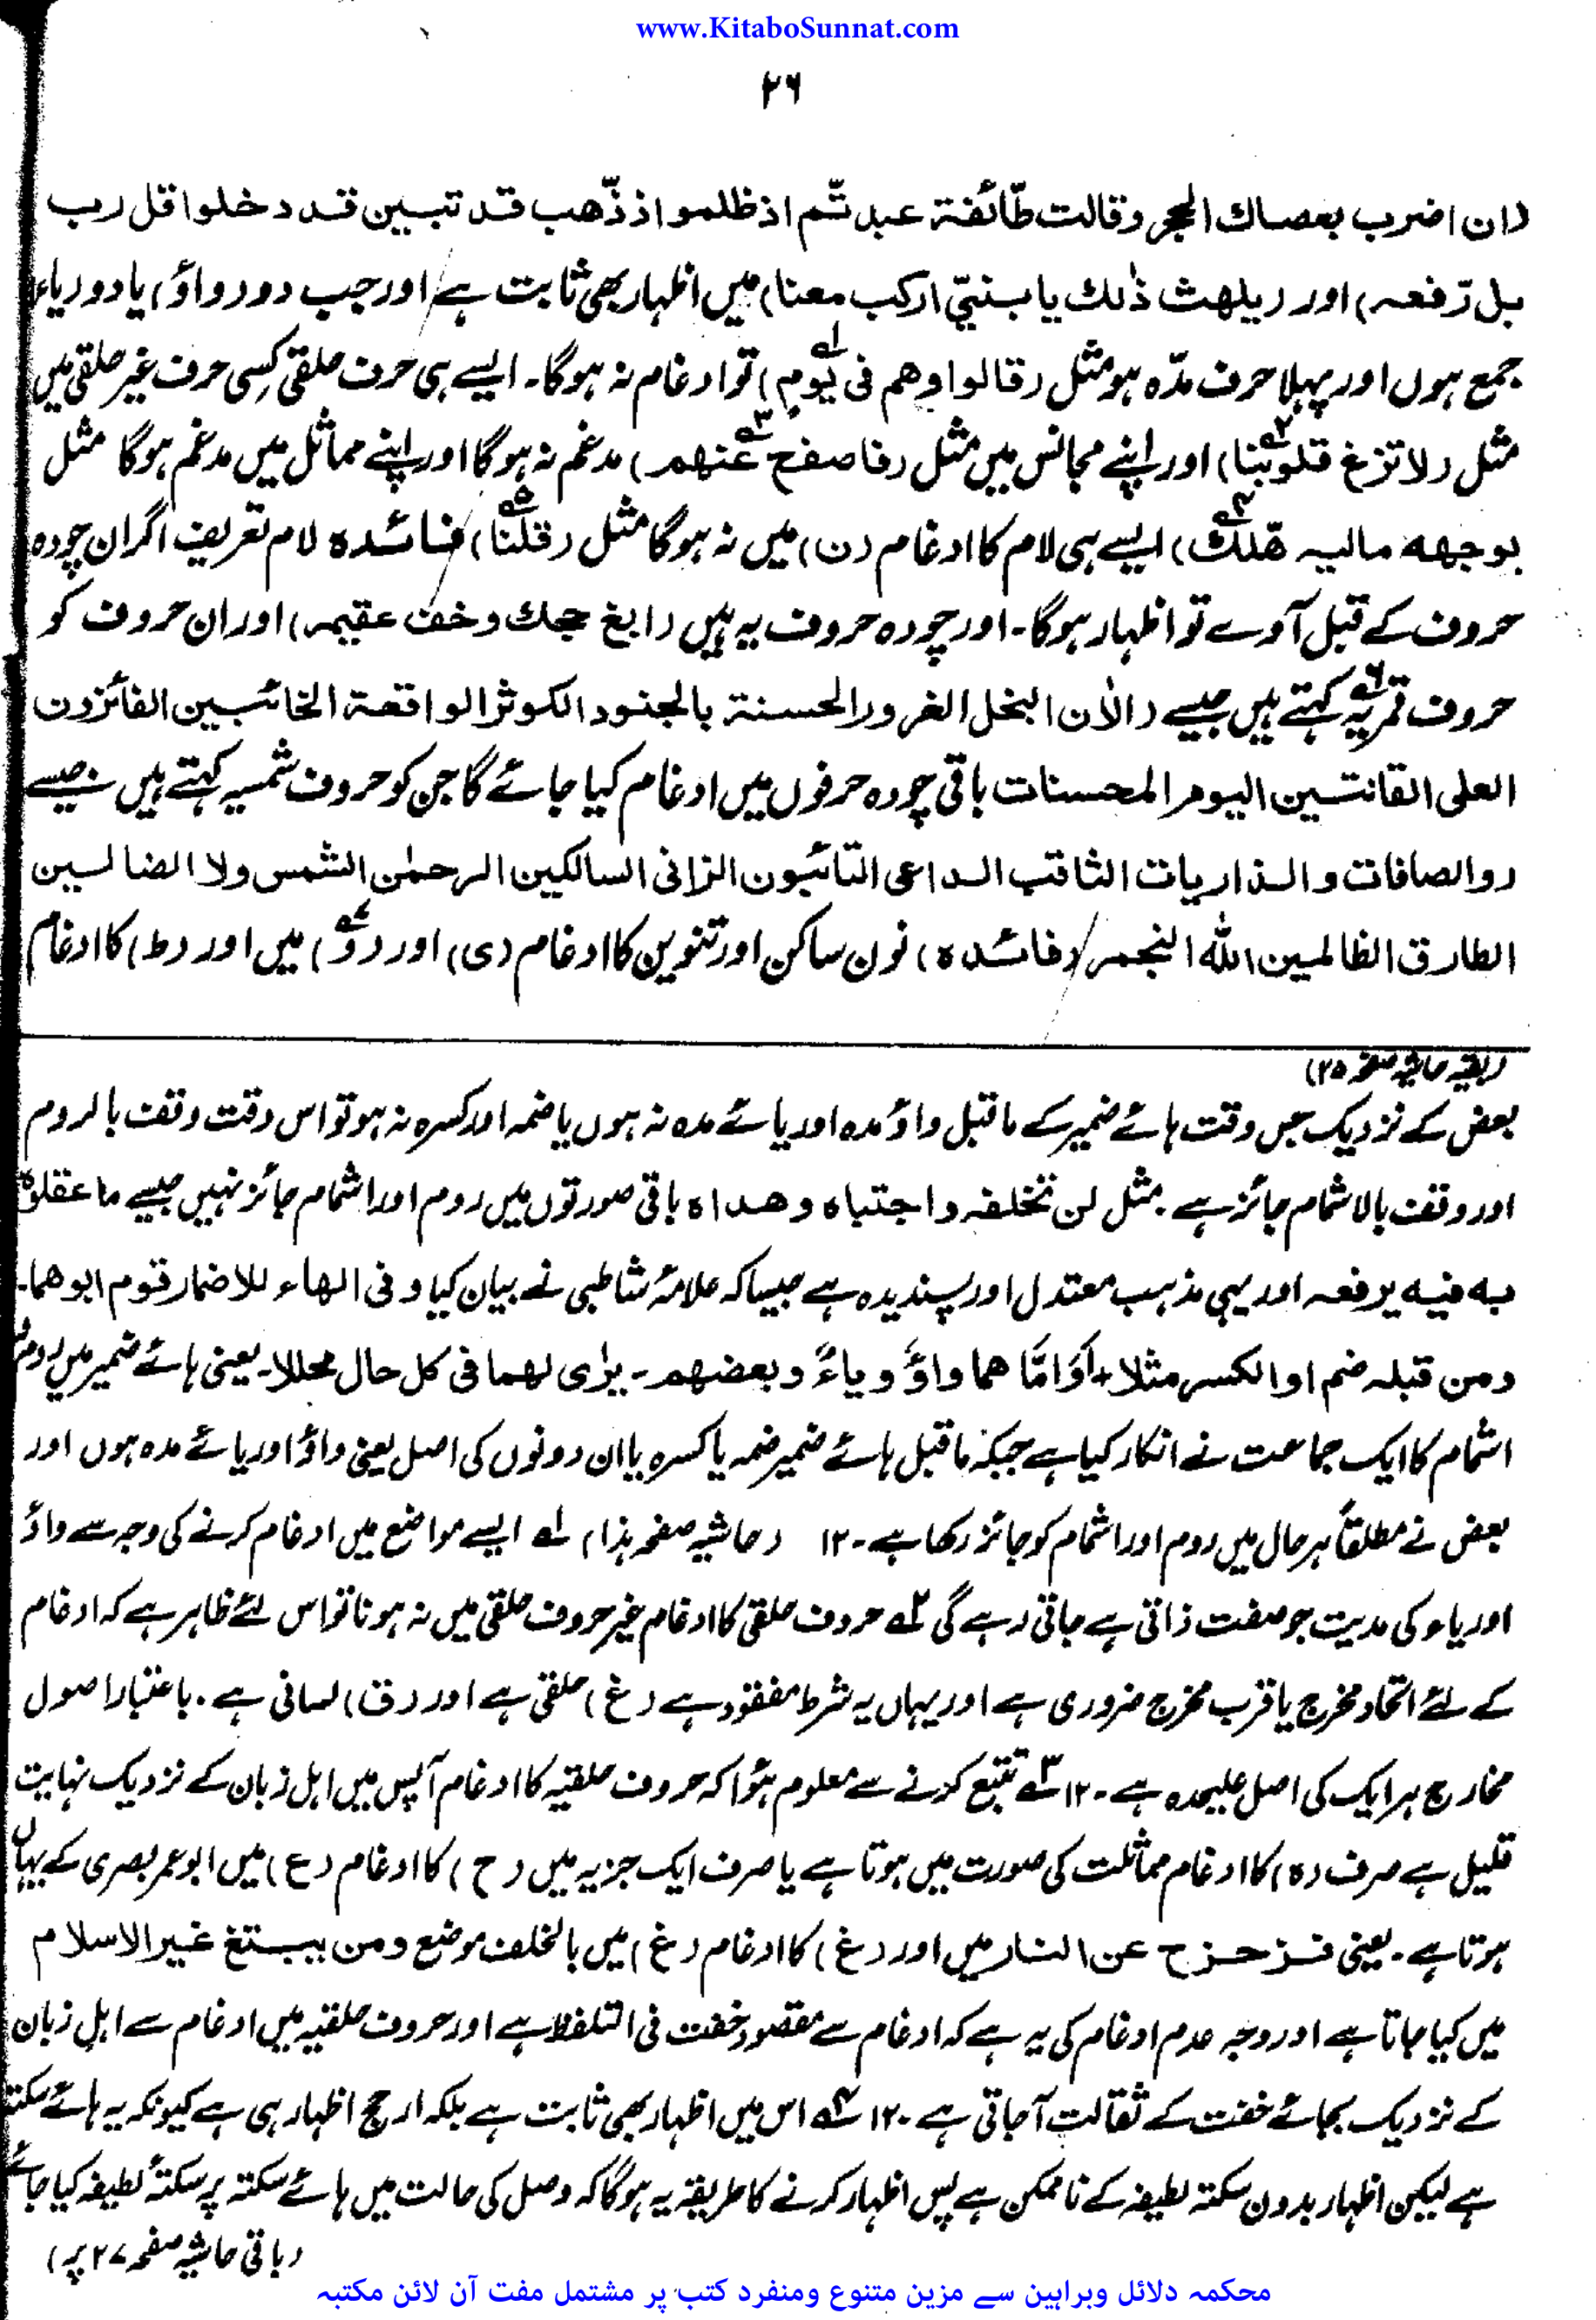 www.KitaboSunnat.com
۲۶
(ان اضرب بعصاك الحجر وقالت طّائفة عبدتّم اذ ظلموا اذ ذّهب قد تبين قد دخلوا قل رب
بل رّفعه) اور (یلهث ذٰلك یا بنیّ اركب معنا) میں اظہار بھی ثابت ہے اور جب دو (واؤ) یا دو (یاء)
جمع ہوں اور پہلا حرف مدّہ ہو مثل (قالوا وهم فی یوم) لہ تو ادغام نہ ہوگا۔ ایسے ہی حرف حلقی کِسی حرف غیر حلقی میں
مثل (لا تزغ قلوبنا) ۲ اور اپنے مجانس میں مثل (فاصفح عنهم) ۳ مدغم نہ ہوگا اور اپنے مماثل میں مدغم ہوگا مثل
یوجهه مالیه هّلك) ۴ ایسے ہی لام کا ادغام (ن) میں نہ ہوگا مثل (قلنا) ۵ فائده لام تعریف اگر ان چودہ
حروف کے قبل آوے تو اظہار ہوگا۔ اور چودہ حروف یہ ہیں (ابغ حجك وخف عقیمہ) اور ان حروف کو
حروف قمریہ ۶ کہتے ہیں جیسے (الاٰن البخل الغرور الحسنة بالجنود الكوثر الواقعة الخائبین الفائزون
العلی القانتین الیوم المحسنات باقی چودہ حرفوں میں ادغام کیا جائے گا جن کو حروف شمسیہ کہتے ہیں جیسے
(والصافات والذاریات الثاقب الداعی التائبون الزانی السالكین الرحمٰن الشمس ولا الضالین
الطارق الظالمین الله النجم (فائده) نون ساکن اور تنوین کا ادغام (ی) اور (و) ۷ میں اور (ط) کا ادغام
(بقیہ حاشیہ صفحہ ۲۵)
بعض کے نزدیک جس وقت ہائے ضمیر کے ماقبل واؤ مدہ اور یائے مدہ نہ ہوں یا ضمہ اور کسرہ نہ ہو تو اس وقت وقف بالروم
اور وقف بالاشمام جائز ہے۔ مثل لن تخلفه واجتباه وهداه باقی صورتوں میں روم اور اشمام جائز نہیں جیسے ما عقلوه
به فیه یرفعه اور یہی مذہب معتدل اور پسندیدہ ہے جیسا کہ علامۂ شاطبی نے بیان کیا وفی الهاء للاضمار قوم ابوهما۔
ومن قبله ضم او الكسر مثلا + اَوْ اِمَّا هما واوٌ ویاءٌ وبعضهم۔ یرٰی لهما فی كل حال محللا۔ یعنی ہائے ضمیر میں روم
اشمام کا ایک جماعت نے انکار کیا ہے جبکہ ماقبل ہائے ضمیر ضمہ یا کسرہ یا ان دونوں کی اصل یعنی واؤ اور یائے مدہ ہوں اور
بعض نے مطلقاً ہر حال میں روم اور اشمام کو جائز رکھا ہے۔ ۱۲ (حاشیہ صفحہ ہذا) لہ ایسے مواضع میں ادغام کرنے کی وجہ سے واؤ
اور یاء کی مدیت جو صفت ذاتی ہے جاتی رہے گی ۲ حروف حلقی کا ادغام غیر حروف حلقی میں نہ ہونا تو اس لئے ظاہر ہے کہ ادغام
کے لئے اتحاد مخرج یا قرب مخرج ضروری ہے اور یہاں یہ شرط مفقود ہے (غ) حلقی ہے اور (ق) لسانی ہے۔ باعتبار اصول
مخارج ہر ایک کی اصل علیحدہ ہے۔ ۱۲ ۳ تتبع کرنے سے معلوم ہؤا کہ حروف حلقیہ کا ادغام آپس میں اہل زبان کے نزدیک نہایت
قلیل ہے صرف (ہ) کا ادغام مماثلت کی صورت میں ہوتا ہے یا صرف ایک جزیہ میں (ح) کا ادغام (ع) میں ابو عمر بصری کے یہاں
ہوتا ہے۔ یعنی فزحزح عن النار میں اور (غ) کا ادغام (غ) میں بالخلف موضع ومن یبتغ غیر الاسلام
میں کیا جاتا ہے اور وجہ عدم ادغام کی یہ ہے کہ ادغام سے مقصود خفت فی التلفظ ہے اور حروف حلقیہ میں ادغام سے اہل زبان
کے نزدیک بجائے خفت کے ثقالت آجاتی ہے۔ ۱۲ ۴ اس میں اظہار بھی ثابت ہے بلکہ ارجح اظہار ہی ہے کیونکہ یہ ہائے سکتہ
ہے لیکن اظہار بدون سکتہ لطیفہ کے ناممکن ہے پس اظہار کرنے کا طریقہ یہ ہوگا کہ وصل کی حالت میں ہائے سکتہ پر سکتۂ لطیفہ کیا جائے
(باقی حاشیہ صفحہ ۲۷ پر)
محکمہ دلائل وبراہین سے مزین متنوع ومنفرد کتب پر مشتمل مفت آن لائن مکتبہ